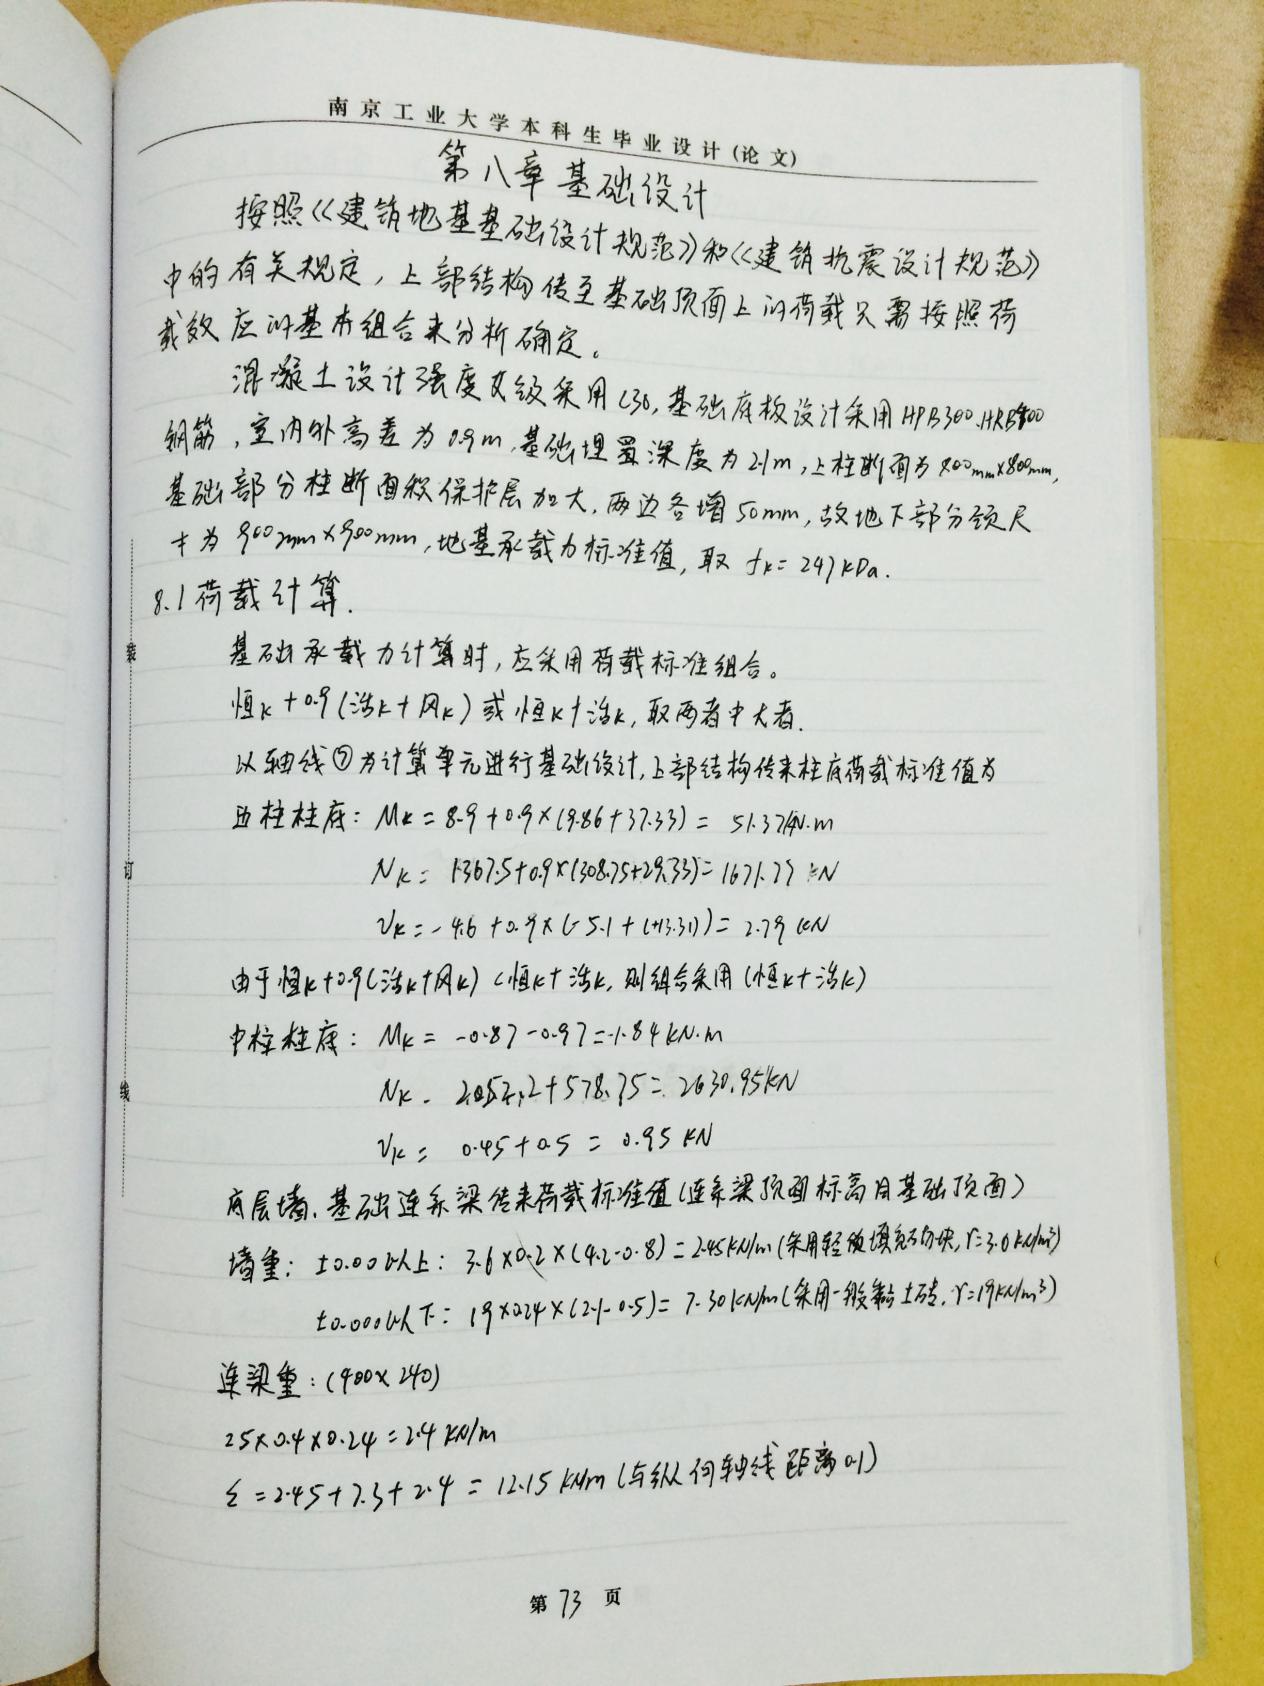 南京工业大学本科生毕业设计(论文)
第八章基础设计
按照《建筑地基基础设计规范》和《建筑抗震设计规范》
中的有关规定，上部结构传至基础顶面上的荷载只需按照荷
载效应的基本组合来分析确定。
混凝土设计强度等级采用C30,基础底板设计采用HPB300、HRB400
钢筋，室内外高差为0.9m,基础埋置深度为2.1m,上柱断面为800mm×800mm,
基础部分柱断面积保护层加大,两边各增50mm,故地下部分颈尺
寸为900mm×900mm,地基承载力标准值,取fk=247kPa.
8.1荷载计算.
基础承载力计算时,应采用荷载标准组合。
恒k+0.9(活k+风k)或恒k+活k,取两者中大者.
以轴线⑦为计算单元进行基础设计,上部结构传来柱底荷载标准值为
边柱柱底: Mk=8.9+0.9×(9.86+37.33)= 51.37kN.m
Nk= 1367.5+0.9×(308.75+29.33)=1671.77kN
Vk=-4.6+0.9×(-5.1+(+13.31))=2.79kN
由于恒k+0.9(活k+风k)<恒k+活k,则组合采用(恒k+活k)
中柱柱底: Mk= -0.87-0.97=-1.84kN.m
Nk= 2052.2+578.75=2630.95kN
Vk= 0.45+0.5=0.95kN
底层墙、基础连系梁传来荷载标准值(连系梁顶面标高同基础顶面)
墙重: ±0.00以上: 3.6×0.2×(4.2-0.8)=2.45kN/m(采用轻质填充砌块,r=3.6kN/m³)
±0.000以下: 19×0.24×(2.1-0.5)=7.30kN/m(采用一般黏土砖,r=19kN/m³)
连梁重:(400×240)
25×0.4×0.24=2.4kN/m
Σ=2.45+7.3+2.4=12.15kN/m(与纵向轴线距离0.1)
装
订
线
第73页